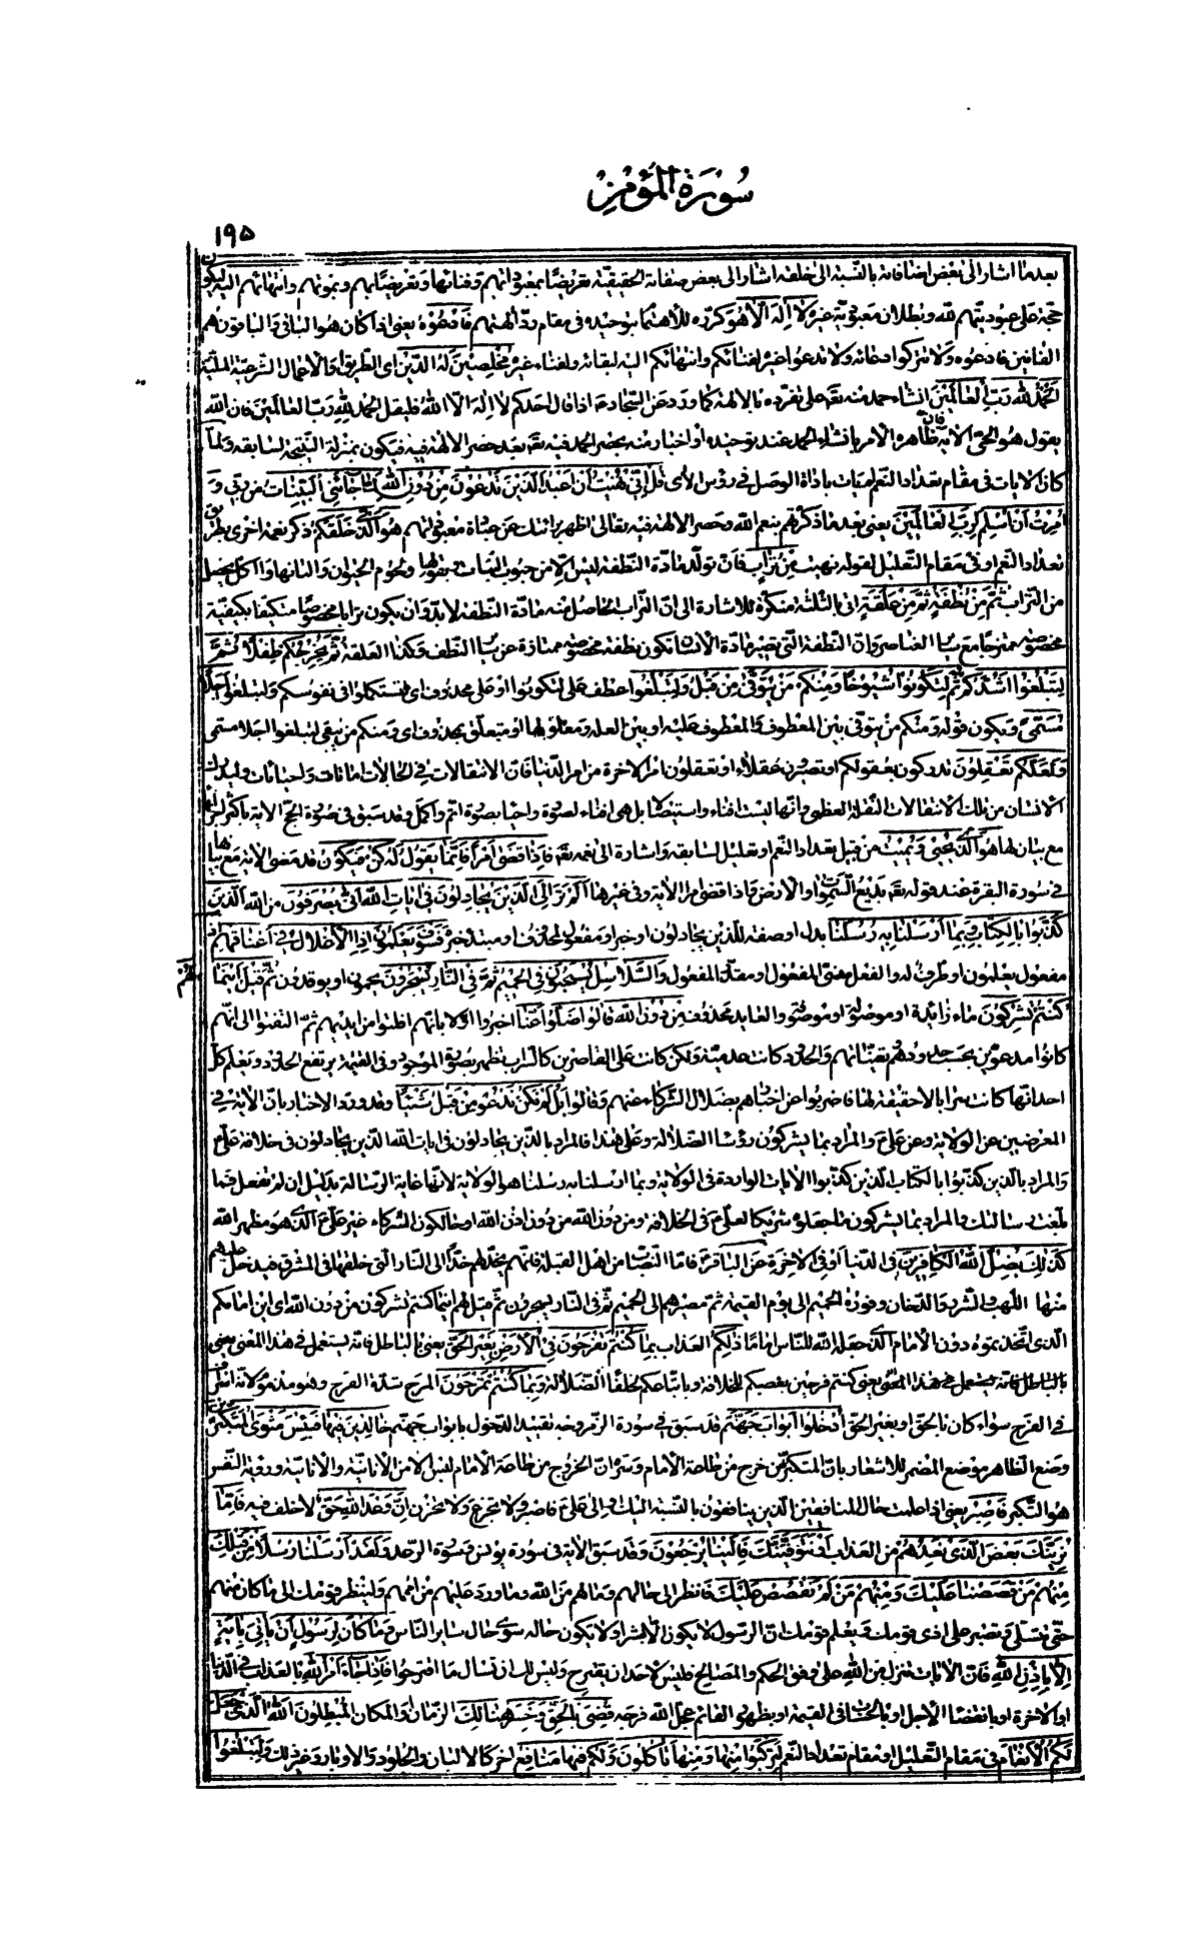 سورة المؤمن
١٩٥
بعد ما اشار الى بعض اضافاته بالنسبة الى خلقه اشار الى بعض صفاته الحقيقية تعريضا بمعبوداتهم وفنائها وتعريضا بهم وبموتهم وانتهائهم اليه ليكون
حجة على عبوديتهم لله وبطلان معبودية غيره لا اله الا هو كرره للاهتمام بتوحيده فى مقام رد الهتهم فادعوه يعنى اذا كان هو الباقى والباقون هم
الفانين فادعوه ولا تتركوا دعائه ولا تدعوا غيره لفنائكم وانتهائكم اليه لبقائه ولفناء غيره مخلصين له الدين اى الطريق والاعمال الشرعية الملية
الحمد لله رب العالمين انشاء حمد منه تعم على تفرده بالالهة كما ورد عن السجاد ع اذا قال احدكم لا اله الا الله فليقل الحمد لله رب العالمين فان الله
يقول هو الحى الاية فان ظاهره الامر بانشاء الحمد عند توحيده او اخبار منه بحصر الحمد فيه تعم بعد حصر الالهة فيه فيكون بمنزلة النتيجة للسابقه ولما
كان الايات فى مقام تعداد النعم لم يات باداة الوصل فى رؤس الاى قل انى نهيت ان اعبد الذين تدعون من دون الله لما جائنى البينات من ربى و
امرت ان اسلم لرب العالمين يعنى بعد ما ذكرتهم بنعم الله وحصر الالهة فيه تعالى اظهر برائتك عن عبادة معبوداتهم هو الذى خلقكم ذكر نعمة اخرى بطريق
تعداد النعم او فى مقام التعليل لقوله نهيت من تراب فان تولد مادة النطفة ليس الا من حبوب النبات بقولها ولحوم الحيوان والبانها والكل يحصل
من التراب ثم من نطفة ثم من علقة اتى بالثلثة منكرة للاشارة الى ان التراب الحاصل منه مادة النطفة لابد وان يكون ترابا مخصوصا متكيفا بكيفية
مخصوصة ممتزجا مع سائر العناصر وان النطفة التى تصير مادة الانسان تكون نطفة مخصوصة ممتازة عن سائر النطف وكذا العلقة ثم يخرجكم طفلا ثم
لتبلغوا اشدكم ثم لتكونوا شيوخا ومنكم من يتوفى من قبل ولتبلغوا عطف على لتكونوا او على محذوف اى لتستكملوا فى نفوسكم ولتبلغوا اجلا
مسمى ويكون قوله ومنكم من يتوفى بين المعطوف والمعطوف عليه او بين العلة ومعلولها او متعلق بمحذوف اى ومنكم من يبقى لتبلغوا اجلا مسمى
ولعلكم تعقلون تدركون بعقولكم او تصيرون عقلاء او تعقلون امر الاخرة من امر الدنيا فان الانتقالات فى الحالات اماتات واحيائات وليدرك
الانسان من تلك الانتقالات النقلة العظمى وانها ليست افناء واستيصالا بل هى افناء لصورة واحياء بصورة اتم واكمل وقد سبق فى سورة الحج الاية باكثر اجزائها
مع بيان لها هو الذى يحيى ويميت من قبيل تعداد النعم او تعليل لسابقه واشارة الى نعمه تعم فاذا قضى امرا فانما يقول له كن فيكون قد مضى الاية مع بيانها
فى سورة البقرة عند قوله تعم بديع السموات والارض واذا قضى امرا الاية وفى غيرها الم تر الى الذين يجادلون فى ايات الله انى يصرفون من الله الذين
كذبوا بالكتاب وبما ارسلنا به رسلنا بدل او صفة للذين يجادلون او خبر او مفعول لمحذوف او مبتدء خبره فسوف يعلمون اذ الاغلال فى اعناقهم
مفعول يعلمون او ظرف له والفعل منسى المفعول او مقدر المفعول والسلاسل يسحبون فى الحميم ثم فى النار يسجرون يحمون او يوقدون ثم قيل لهم اينما
كنتم تشركون ما زائدة او موصولة او موصوفة والعايد محذوف من دون الله قالوا ضلوا عنا اخبروا اولا بانهم اظلوا من ايديهم ثم التفتوا الى انهم
كانوا مدعوين بحسب حدودهم وتعيناتهم والحدود كانت عدمية ولكن كانت على القاصرين كالسراب تظهر بصورة الموجود وفى القيمة يرتفع الحدود ويعلم كل
احد انها كانت سرابا لا حقيقة لها فاضربوا عن اخبارهم بضلال الشركاء عنهم وقالوا بل لم نكن ندعوا من قبل شيئا وقد ورد الاخبار بان الاية فى
المعرضين عن الولاية وعن على ع والمراد بما يشركون رؤساء الضلالة وعلى هذا فالمراد بالذين يجادلون فى ايات الله الذين يجادلون فى خلافة على ع
والمراد بالذين كذبوا بالكتاب الذين كذبوا الايات الواردة فى الولاية وبما ارسلنا به رسلنا هو الولاية لانها غاية الرسالة بدليل ان لم تفعل فما
بلغت رسالتك والمراد بما يشركون ما جعلوه شريكا لعلى ع فى الخلافة ومن دون الله من دون اذن الله او حالكون الشركاء غير على ع الذى هو مظهر الله
كذلك يضل الله الكافرين فى الدنيا او فى الاخرة عن الباقر ع فاما النصاب من اهل القبلة فانهم يخد لهم خدا الى النار التى خلقها فى المشرق فيدخل عليهم
منها اللهب والشرر والدخان وفورة الحميم الى يوم القيمة ثم مصيرهم الى الحميم ثم فى النار يسجرون ثم قيل لهم اينما كنتم تشركون من دون الله اى اين امامكم
الذى اتخذتموه دون الامام الذى جعله الله للناس اماما ذلكم العذاب بما كنتم تفرحون فى الارض بغير الحق يعنى بالباطل فانه يستعمل فى هذا المعنى يعنى
بالباطل فانه يستعمل فى هذا المعنى يعنى كنتم فرحين بغصبكم للخلافة وباتباعكم لخلفاء الضلالة وبما كنتم تمرحون المرح شدة الفرح وهو مذموم لانه افراط
فى الفرح سواء كان بالحق او بغير الحق ادخلوا ابواب جهنم قد سبق فى سورة الزمر وجه تقييد الدخول بابواب جهنم خالدين فيها فبئس مثوى المتكبرين
وضع الظاهر موضع المضمر للاشعار بان المتكبر من خرج من طاعة الامام وسر ان الخروج من طاعة الامام ليس الا من الانانية والانانية ورؤية النفس
هو التكبر فاصبر يعنى اذا علمت حال المنافقين الذين ينافقون بالنسبة اليك والى على ع فاصبر ولا تجزع ولا تحزن ان وعد الله حق لا خلف فيه فاما
نرينك بعض الذى نعدهم من العذاب او نتوفينك فالينا يرجعون وقد سبق الاية فى سورة يونس وسورة الرعد ولقد ارسلنا رسلا من قبلك
منهم من قصصنا عليك ومنهم من لم نقصص عليك فانظر الى حالهم وما لهم من الله وما ورد عليهم من اممهم ولينظر قومك الى ما كان منهم
حتى تتسلى وتصبر على اذى قومك ويعلم قومك ان الرسول لا يكون الا بشرا ولا يكون حاله سوى حال سائر الناس وما كان لرسول ان ياتى باية
الا باذن الله فان الايات تنزل من الله على وفق الحكم والمصالح فليس لاحد ان يقترح وليس لك ان تسأل ما اقترحوا فاذا جاء امر الله بالعذاب فى الدنيا
او الاخرة او بانقضاء الاجل او بالحساب فى القيمة او بظهور القائم عجل الله فرجه قضى بالحق وخسر هنالك الزمان والمكان المبطلون الله الذى جعل
لكم الانعام فى مقام التعليل او مقام تعداد النعم لتركبوا منها ومنها تاكلون ولكم فيها منافع اخر كالالبان والجلود والاوبار وغير ذلك ولتبلغوا